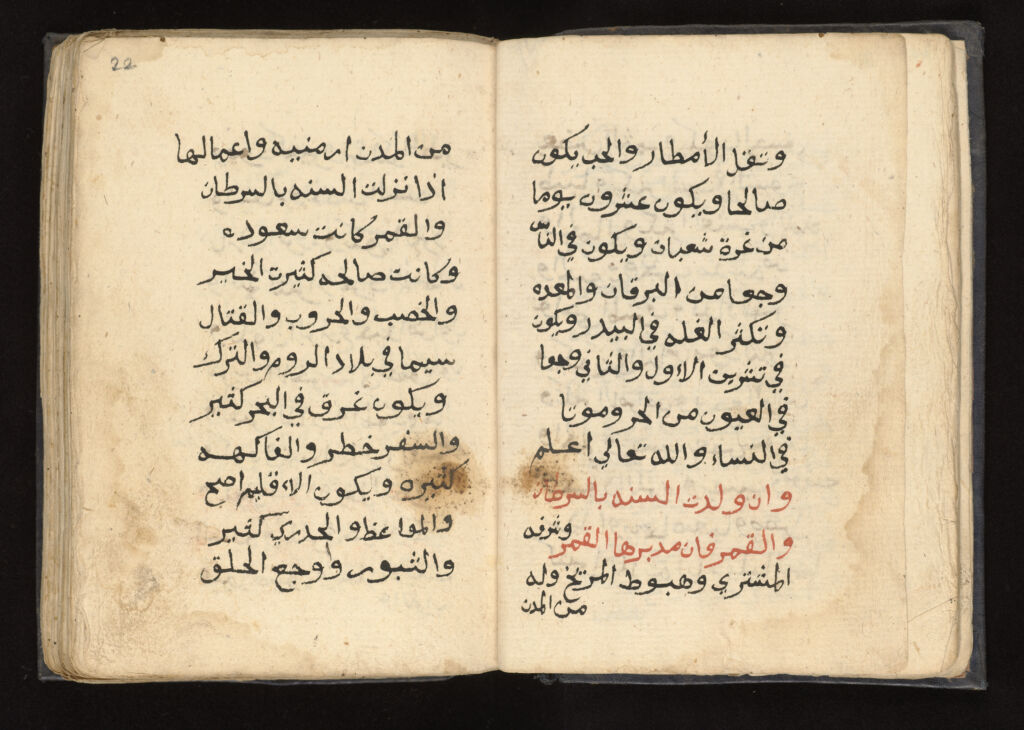 وتقل الأمطار والحب يكون
صالحا ويكون عشرون يوما
من غرة شعبان ويكون في الناس
وجعا من البرقان والمعده
وتكثر الغله في البيدر ويكون
في تشرين الاول والثاني وجعا
في العيون من الحر وموتا
في النساء والله تعالي اعلم
وان ولدت السنه بالسرطان
والقمر فان مدبرها القمر وشرفه
المشتري وهبوط المريخ وله
من المدن
22
من المدن ارمنيه واعمالها
اذا نزلت السنه بالسرطان
والقمر كانت سعوده
وكانت صالحه كثيرت الخير
والخصب والحروب والقتال
سيما في بلاد الروم والترك
ويكون غرق في البحر كثير
والسفر خطر والفاكهه
كثيره ويكون الاقليم اصح
والمواعظ والجدري كثير
والثبور ووجع الحلق